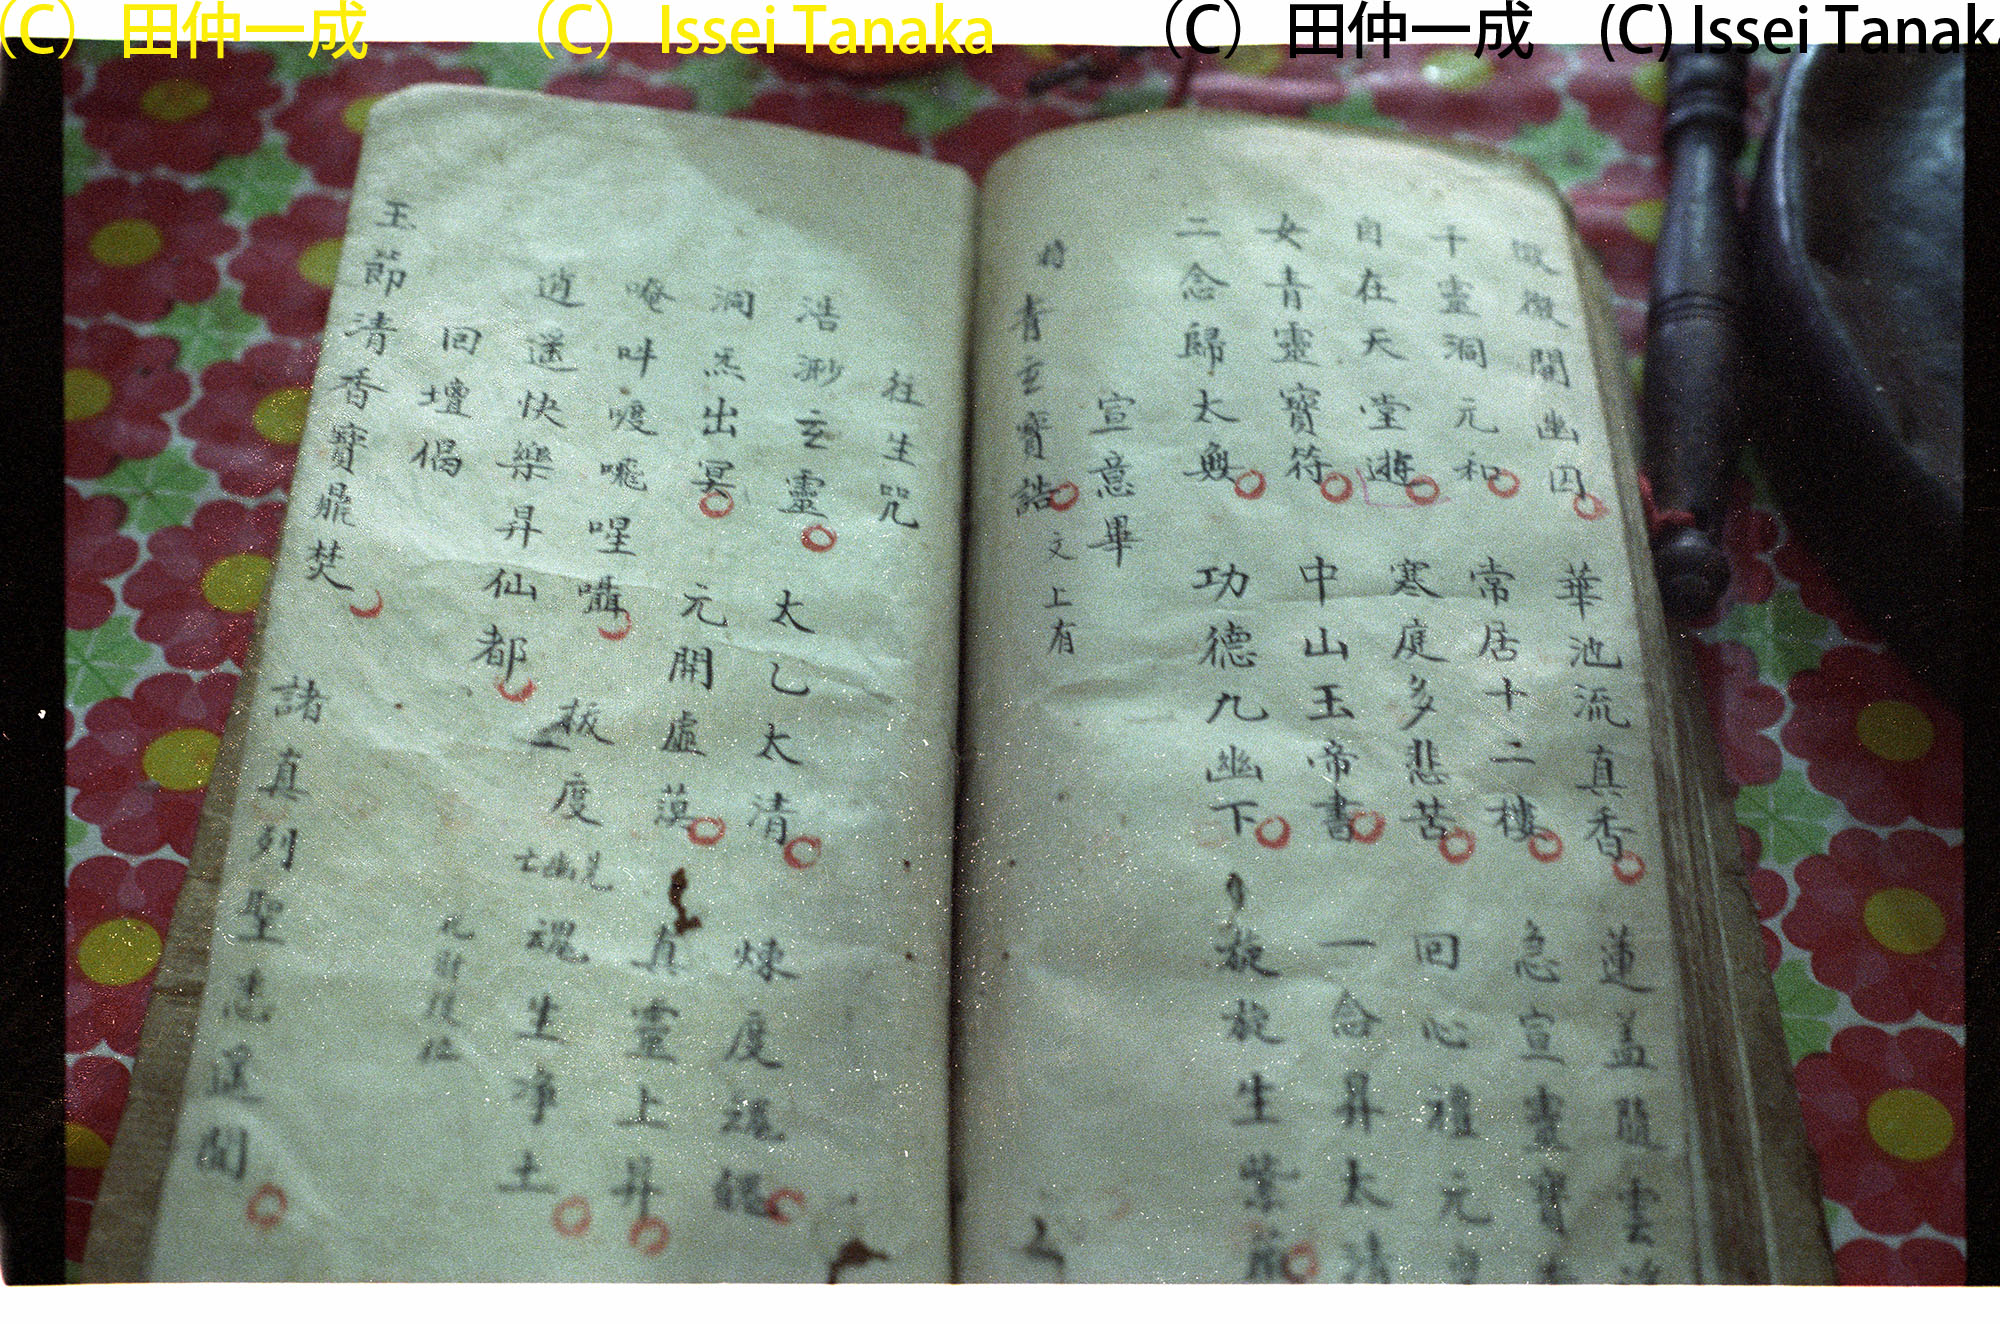 (C) 田仲一成 (C) Issei Tanaka (C) 田仲一成 (C) Issei Tanaka
微開幽囚 華池流真香 蓮盖隨雲
千靈洞元和 常居十二樓 急宣靈寶
自在天堂遊 寒庭多悲苦 回心禮元
女青靈寶符 中山玉帝書 一念昇太清
二念歸太無 功德九幽下 旋旋生紫
宣意畢
青玄寶誥 文上有
往生咒
浩渺玄靈 太乙太清 煉度魂
洞炁出冥 元開虛漠 真靈上昇
唵吽 囁
逍遥快樂昇仙都 拔度 魂生净土
回壇偈
玉節清香寶鼎焚 諸真列聖悉遥聞